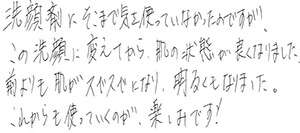 洗顔剤にそこまで気を使っていなかったのですが、
この洗顔に変えてから、肌の状態が良くなりました。
前よりも肌がスベスベになり、明るくもなりました。
これからも使っていくのが、楽しみです！